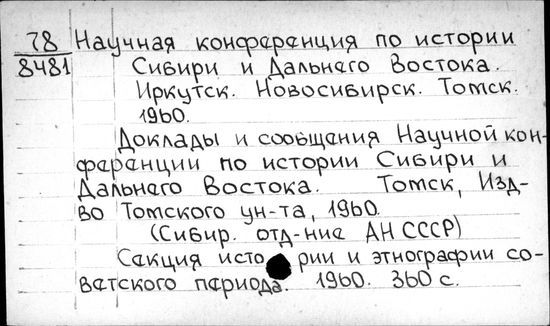 78 Научная конференция по истории
8481 Сибири и Дальнего Востока.
Иркутск. Новосибирск. Томск.
1960.
Доклады и сообщения Научной кон-
ференции по истории Сибири и
Дальнего Востока. Томск, Изд-
во Томского ун-та, 1960.
(Сибир. отд-ние АН СССР)
Секция истории и этнографии со-
ветского периода. 1960. 360 с.